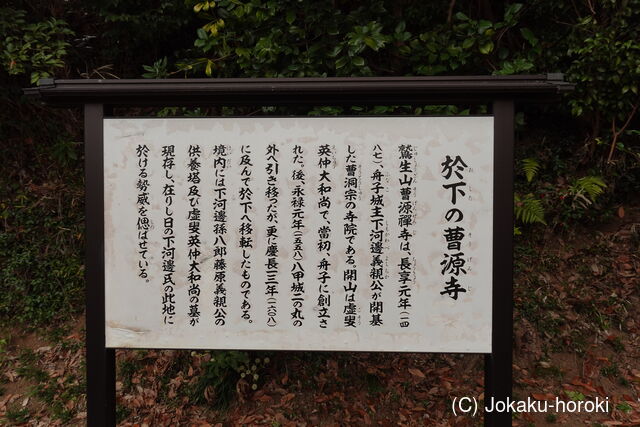 於下の曹源寺
鷲生山曹源禅寺は、長享元年(一四
八七)、舟子城主下河邊義親公が開基
した曹洞宗の寺院である。開山は虚叟
英仲大和尚で、當初、舟子に創立さ
れた。後、永禄元年(一五五八)八甲城二の丸の
外へ引き移ったが、更に慶長一三年(一六〇八)
に及んで於下へ移転したものである。
境内には下河邊孫八郎藤原義親公の
供養塔及び虚叟英仲大和尚の墓が
現存し、在りし日の下河邊氏の此地に
於ける勢威を偲ばせている。
(C) Jokaku-horoki